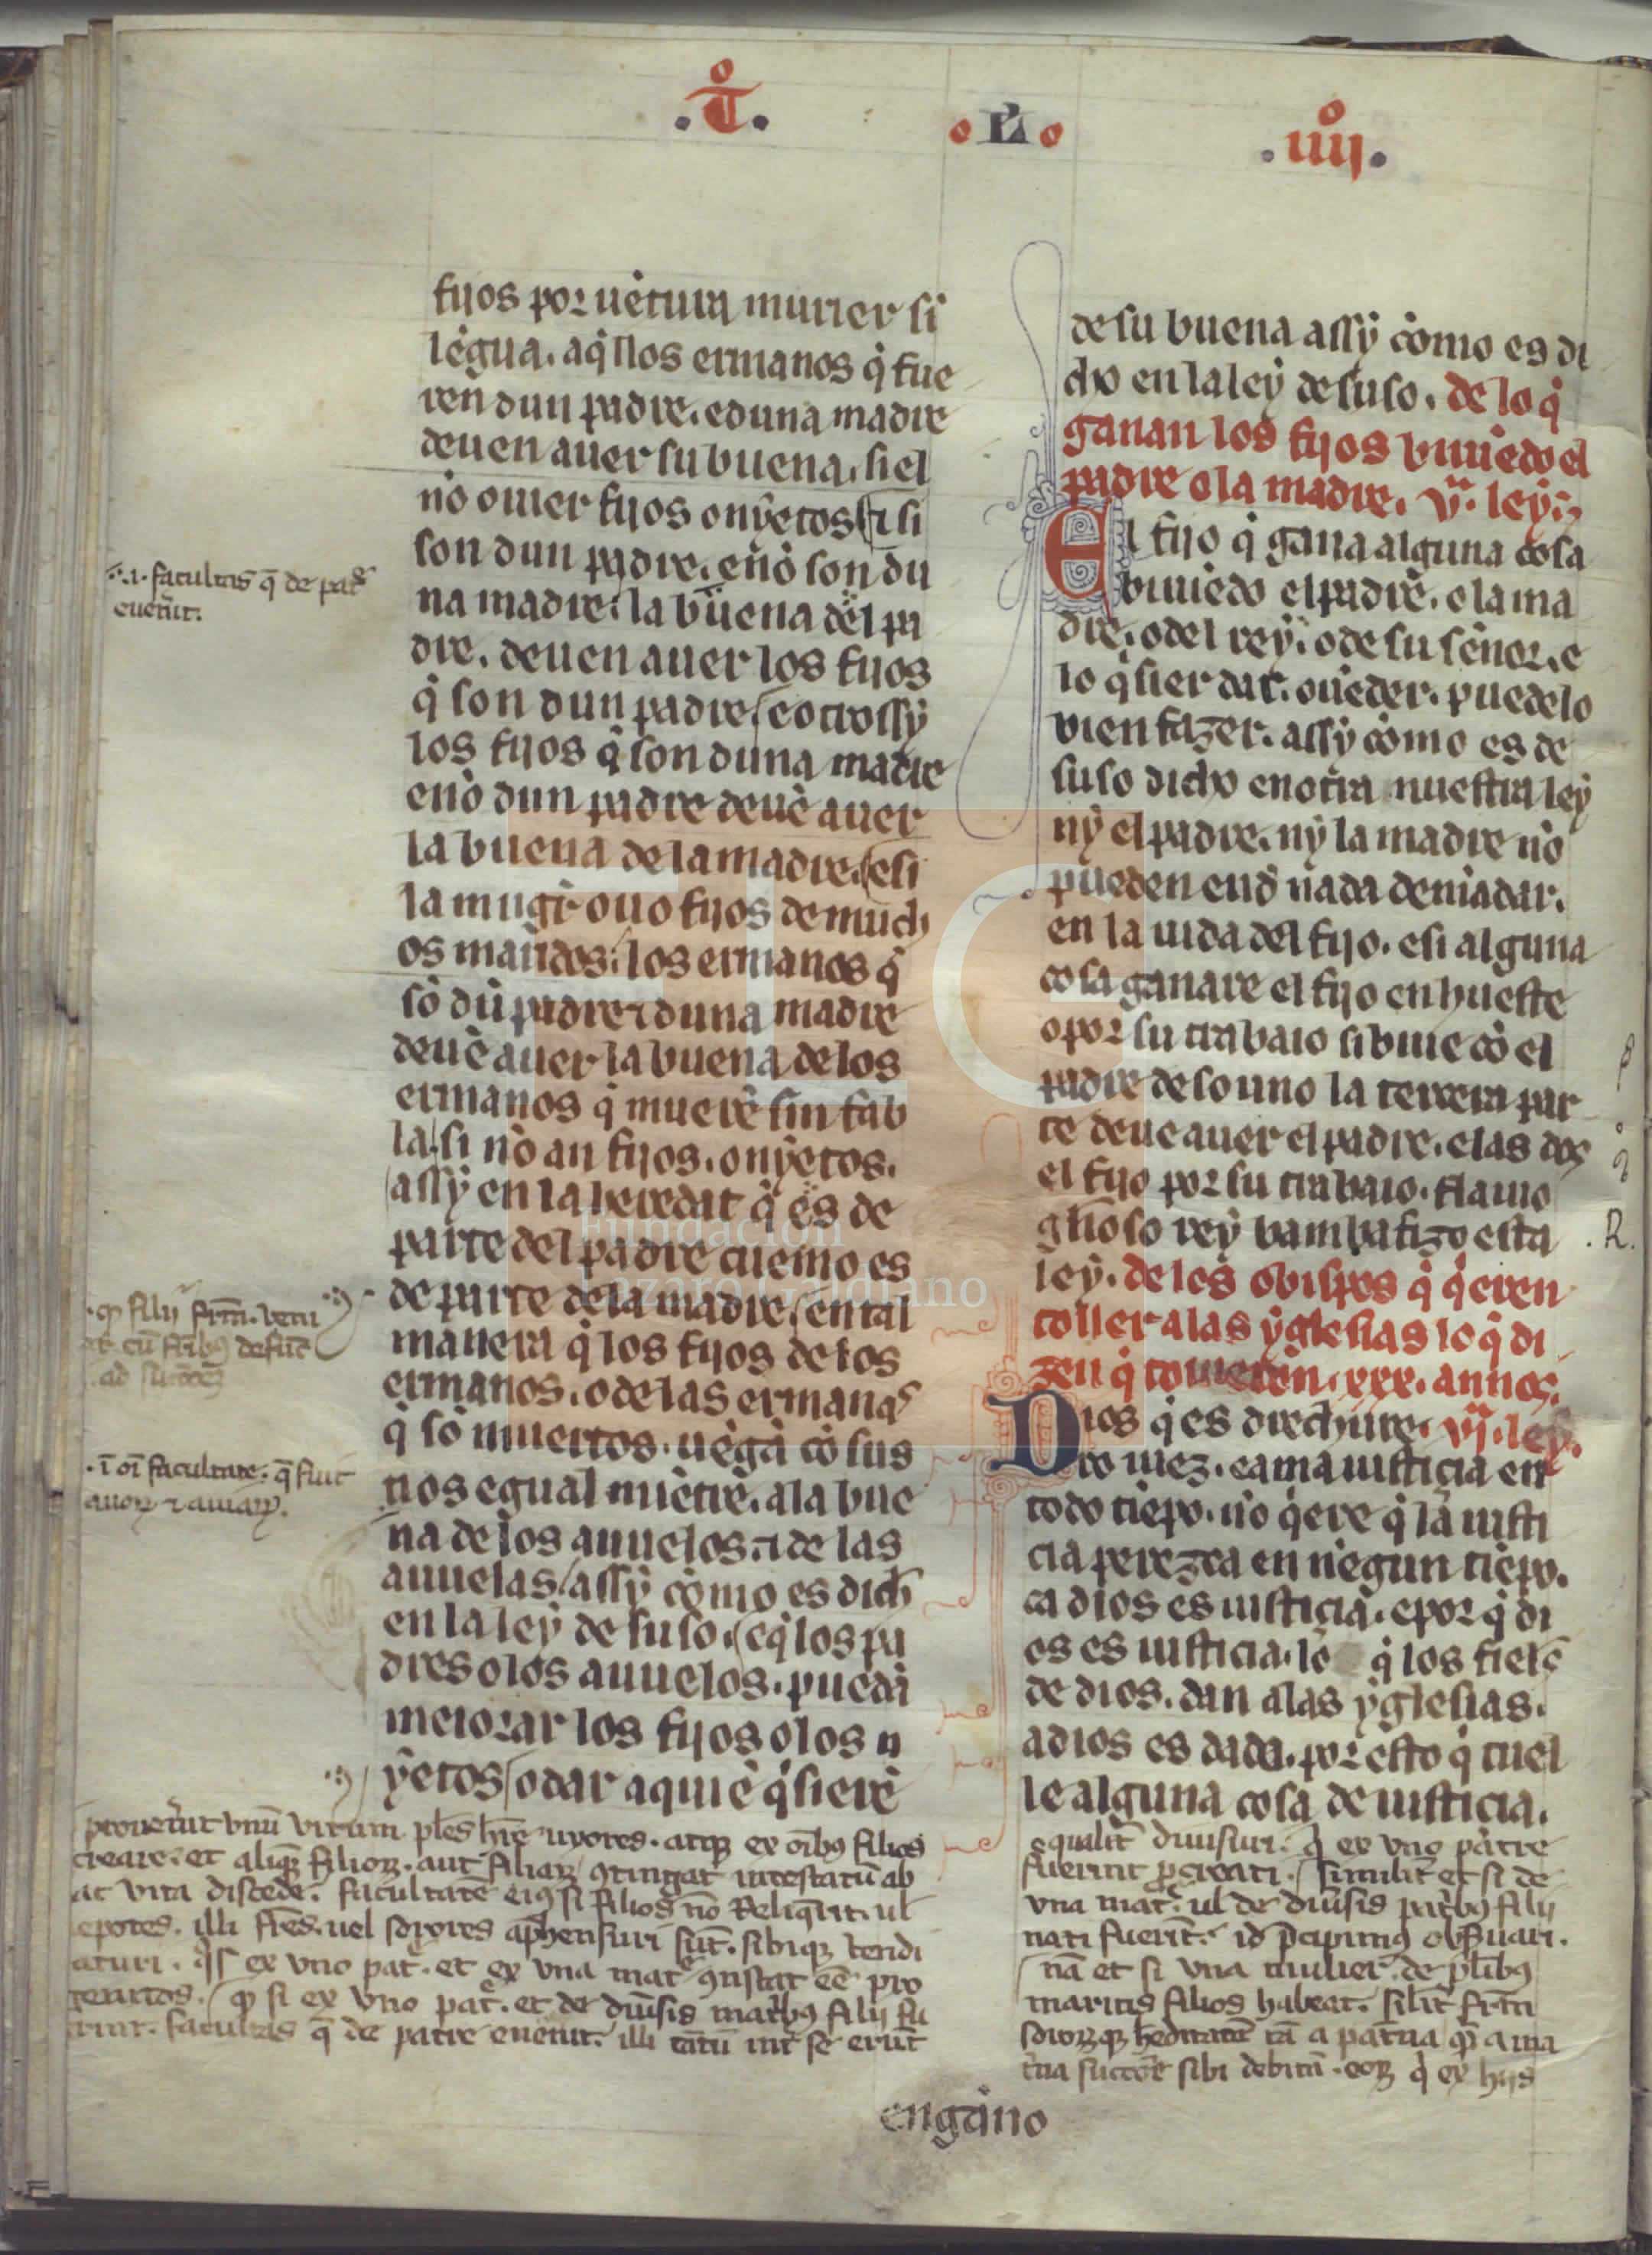 .T. L .iiij.
fijos por uētura murier si
lēgua. aq̇llos ermanos q̇ fue
ren dun padre. e duna madre
deuen auer su buena. si el
nō ouier fijos o nẏetos ⁊ si
son dun padre. e nō son du
na madre. la buena del pa
dre. deuen auer los fijos
q̇ son dun padre e otrossẏ
los fijos q̇ son duna madre
e nō dun padre deuē auer
la buena de la madre. e si
la mugr̄ ouo fijos de much
os maridos. los ermanos q̇
sō dū padre ⁊ duna madre
deuē auer la buena de los
ermanos q̇ muerē sin fab
la. si nō an fijos. o nẏetos.
assẏ en la heredat q̇ es de
parte del padre cuemo es
de parte de la madre. en tal
manera q̇ los fijos de los
ermanos. o de las ermanas
q̇ sō muertos. uēgā cō sus
tios egual miētre. a la bue
na de los auuelos. ⁊ de las
auuelas. assẏ como es dich
en la leẏ de suso. e q̇ los pa
dres o los auuelos. puedā
meiorar los fijos o los n
ẏetos o dar a quiē q̇sierē
de su buena assẏ como es di
cho en la leẏ de suso. de lo q̇
ganan los fijos biuiēdo el
padre o la madre. v.ᵃ leẏ.
El fijo q̇ gana alguna cosa
biuiēdo el padre. o la ma
dre. o del reẏ. o de su sēnor. e
lo q̇sier dar. o uēder. puedelo
bien fazer. assẏ como es de
suso dicho en otra nuestra leẏ
nẏ el padre. nẏ la madre nō
pueden end nada demādar.
en la uida del fijo. e si alguna
cosa ganare el fijo en hueste
o por su trabaio si biue cō el
padre de so uno la tercera par
te deue auer el padre. e las dos
el fijo por su trabaio. flauio
gl̄ioso reẏ bamba fizo esta
leẏ. de los obispos q̇ q̇eren
toller a las ẏglesias lo q̇ di
zen q̇ touieren. xxx. annos.
Dios q̇ es drechure. vi.ᵃ leẏ.
ro iuez. e ama iusticia en
todo tiēpo. nō q̇ere q̇ la iusti
cia perezca en nēgun tiēpo.
ca dios es iusticia. e por q̇ di
os es iusticia. lo q̇ los fieles
de dios. dan a las ẏglesias.
a dios es dada. por esto q̇ tuel
le alguna cosa de iusticia.
.i. facultas q̄ de patr̄
euen̄ut.
.q̄ filij fr̄m. ueni
cū fr̄ibꝰ defūc
ad
.ī oī facultate. q̄ fuit
auoꝝ ⁊ auiaꝝ.
R.
prouen̄ut vnū virum pl̄es h̄re uxores. atqꝫ ex oībꝰ filios
creare. et aliqꝫ filioꝝ. aut filiaꝝ ꝯtingat intestatū ab
ac vita discede. facultatē eiꝰ si filios nō reliq̄it. ul
epotes. illi fr̄es. uel sorores ap̄hensuri sūt. sibiqꝫ uendi
aturi. q̇s ex vno pat. et ex vna mat ꝯstat ee pro
genitos. q̄ si ex vno pat. et de diūsis matribꝰ filij fu
rint. facultas q̄ de patre euenit. illi tātū int̄ se erūt
equalit̄ diuisuri. q̇ ex vno patre
fuerint ꝓcreati. similit̄ et si de
vna mat. ul de diūsis pat̄ibꝰ filij
nati fuerīt. id p̄cipimꝰ obs̄uari.
nā et si vna mulier de pl̄ibꝰ
maritis filios habeat. silit̄ fr̄m
soroꝝqꝫ hereditatē tā a pat̄na q̄ a ma
t̄na successione sibi debitū. eoꝝ q̇ ex hijs
engāno
Fundación
Lázaro Galdiano